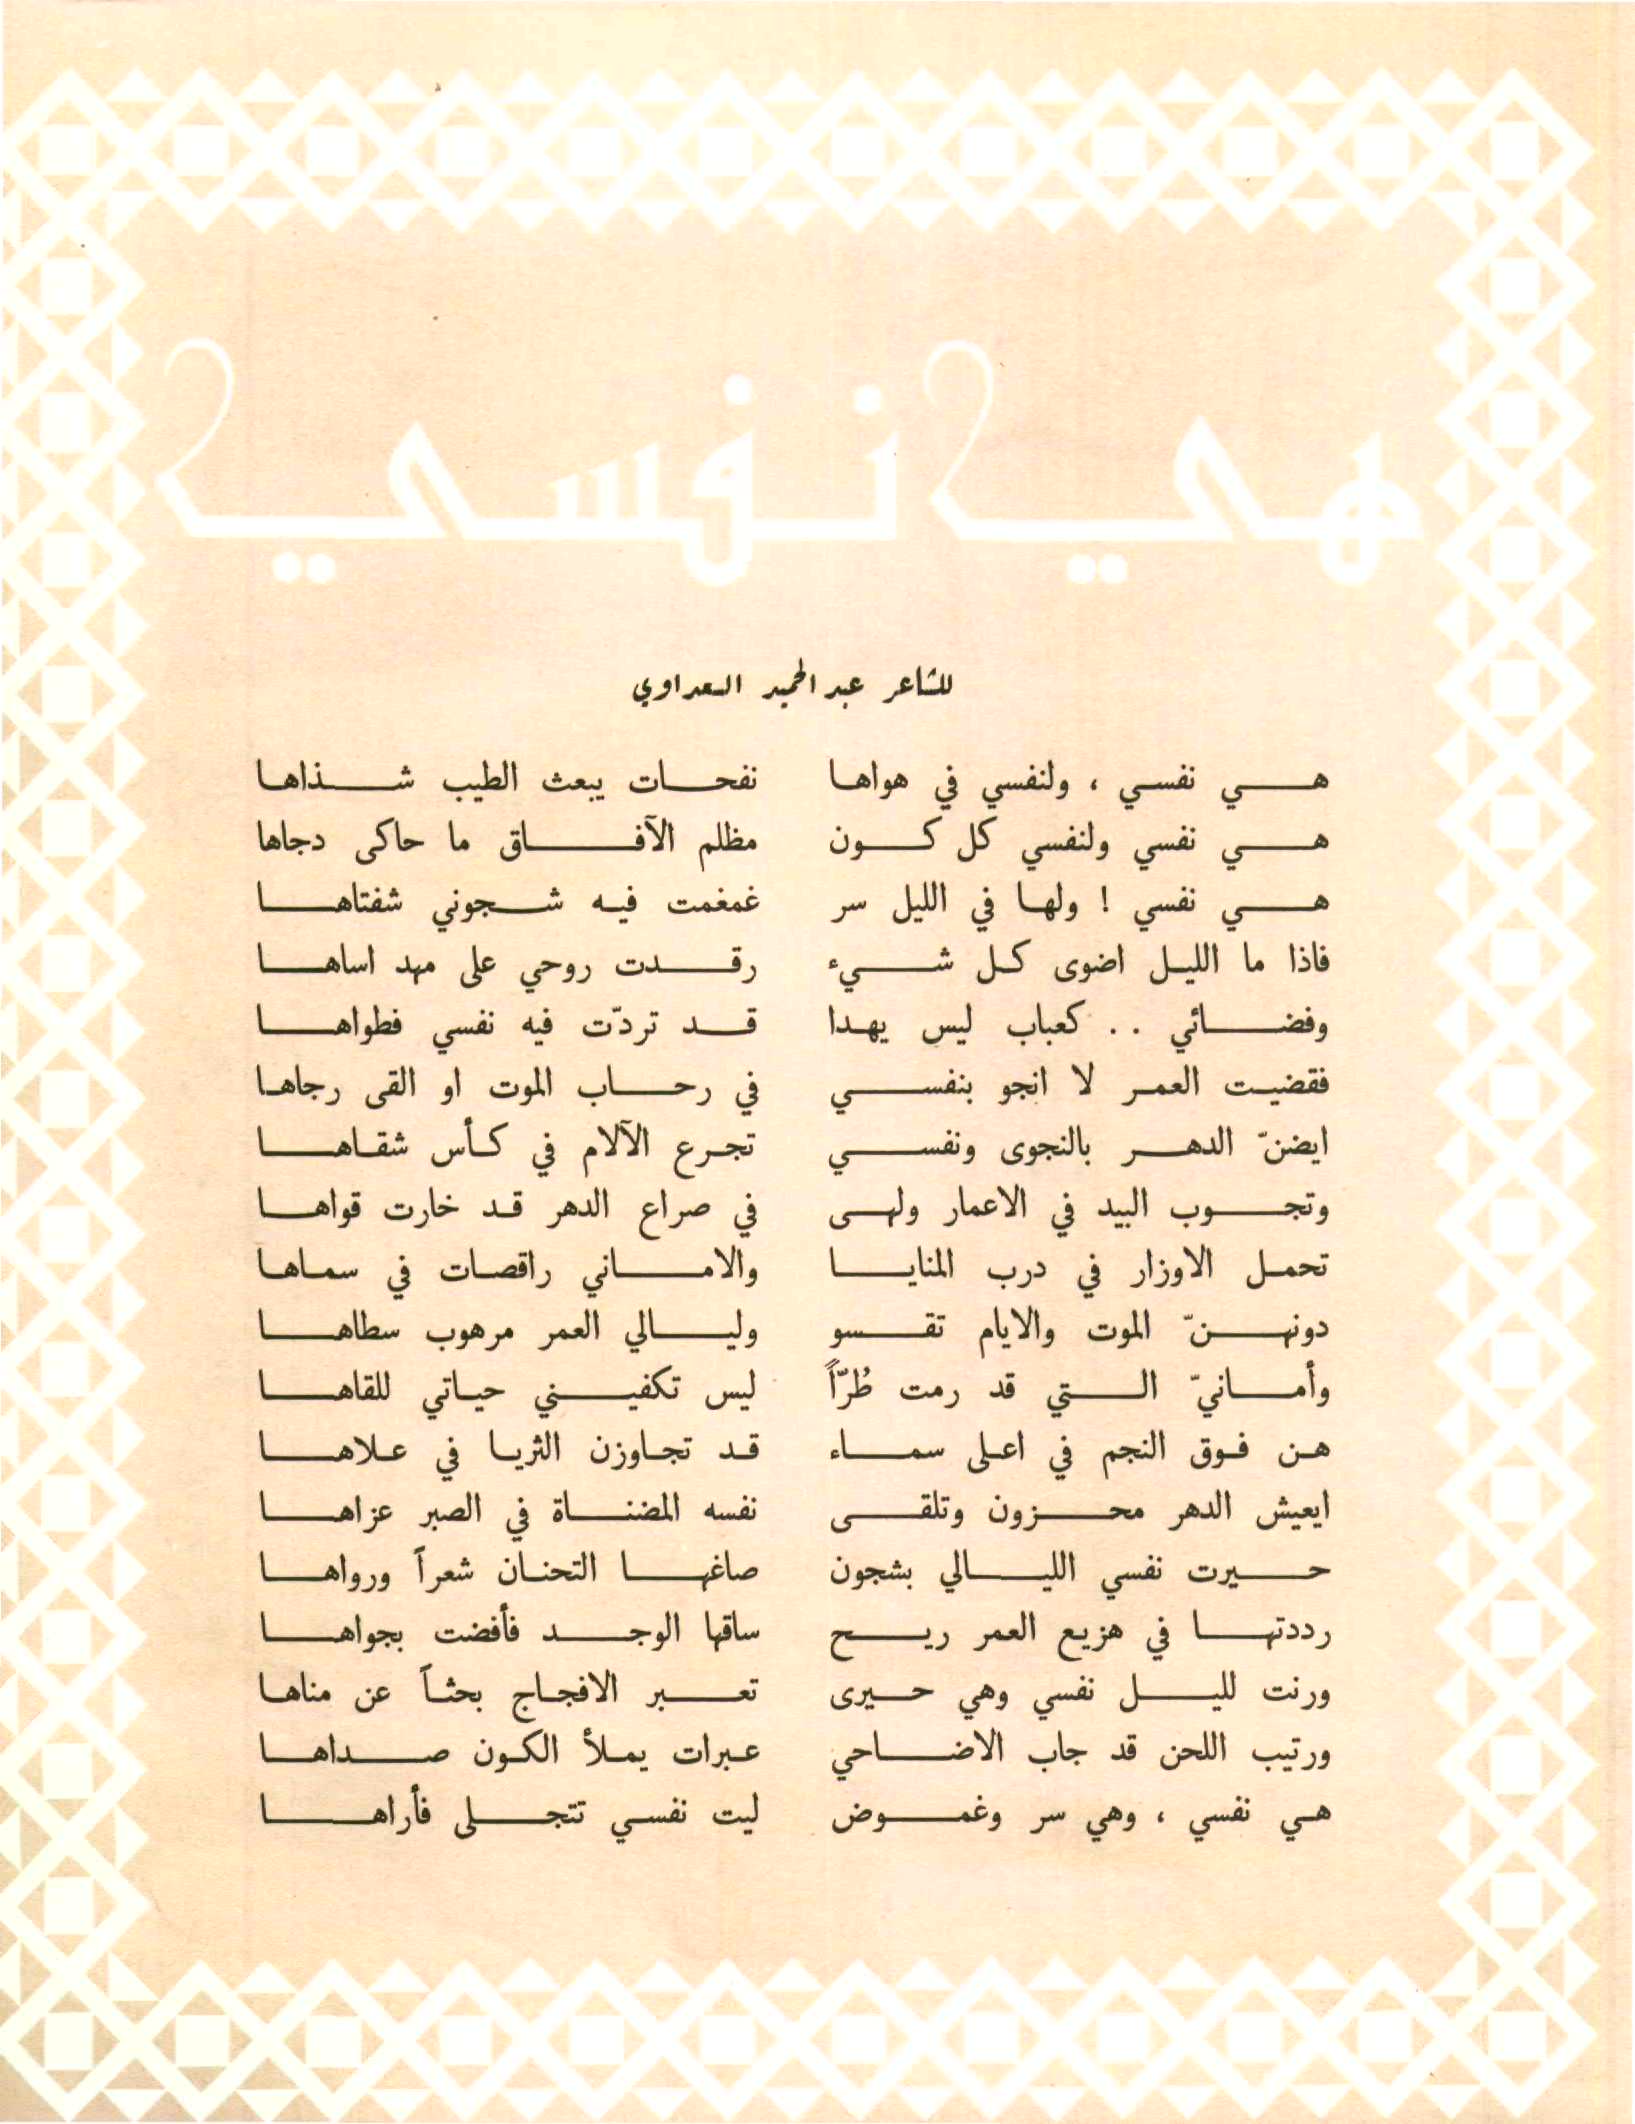 هي نفسي
للشاعر عبد الحميد السعداوي
هي نفسي ، ولنفسي في هواها نفحات يبعث الطيب شذاها
هي نفسي ولنفسي كل كون مظلم الآفاق ما حاكى دجاها
هي نفسي ! ولها في الليل سر غمغمت فيه شجوني شفتاها
فاذا ما الليل اضوى كل شيء رقدت روحي على مهد اساها
وفضائي . . كعباب ليس يهدا قد تردّت فيه نفسي فطواها
فقضيت العمر لا انجو بنفسي في رحاب الموت او القى رجاها
ايضنّ الدهر بالنجوى ونفسي تجرع الآلام في كأس شقاها
وتجوب البيد في الاعمار ولهى في صراع الدهر قد خارت قواها
تحمل الاوزار في درب المنايا والاماني راقصات في سماها
دونهنّ الموت والايام تقسو وليالي العمر مرهوب سطاها
وأمانيّ التي قد رمت طُرّاً ليس تكفيني حياتي للقاها
هن فوق النجم في اعلى سماء قد تجاوزن الثريا في علاها
ايعيش الدهر محزون وتلقى نفسه المضناة في الصبر عزاها
حيرت نفسي الليالي بشجون صاغها التحنان شعراً ورواها
رددتها في هزيع العمر ريح ساقها الوجد فأفضت بجواها
ورنت لليل نفسي وهي حيرى تعبر الافجاج بحثاً عن مناها
ورتيب اللحن قد جاب الاضاحي عبرات يملأ الكون صداها
هي نفسي ، وهي سر وغموض ليت نفسي تتجلى فأراها